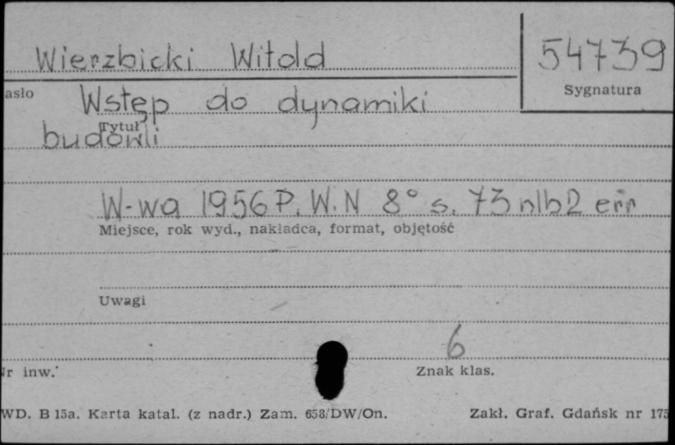 Wierzbicki Witold
54739
asło
Sygnatura
Wstęp do dynamiki
Tytuł
budowli
W-wa 1956 P.W.N 8° s. 73 nlb2 err
Miejsce, rok wyd., nakładca, format, objętość
Uwagi
6
Nr inw.
Znak klas.
WD. B 15a. Karta katal. (z nadr.) Zam. 658/DW/On.
Zakł. Graf. Gdańsk nr 175